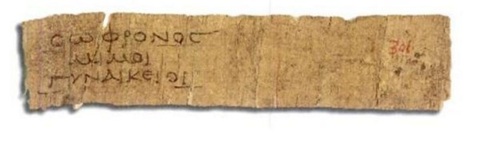 ϹΩΦΡΟΝΟϹ
ΜΙΜΟΙ
ΓΥΝΑΙΚΕΙΟΙ
301